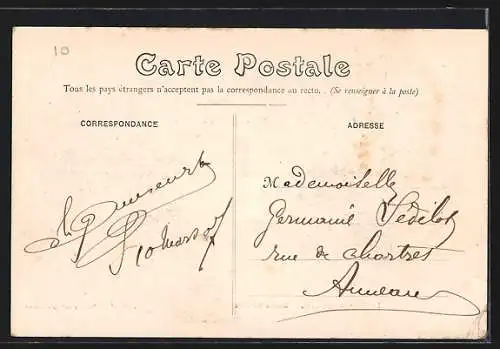 10
Carte Postale
Tous les pays étrangers n'acceptent pas la correspondance au recto. . (Se renseigner à la poste)
CORRESPONDANCE
ADRESSE
10 Mars 07
Mademoiselle
Germaine Sédillot
rue de Chartres
Auneau